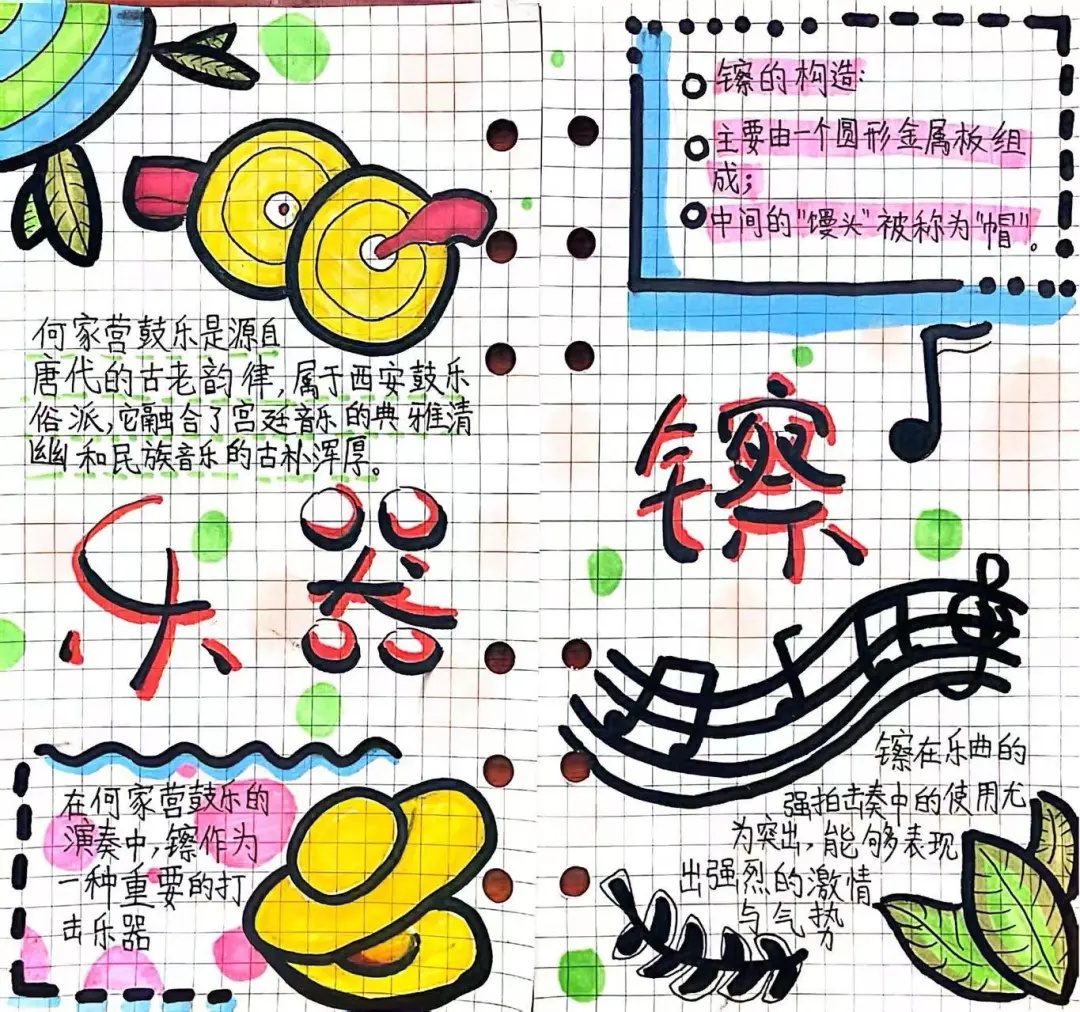 何家营鼓乐是源自
唐代的古老韵律,属于西安鼓乐
俗派,它融合了宫廷音乐的典雅清
幽和民族音乐的古朴浑厚。
乐器
在何家营鼓乐的
演奏中,镲作为
一种重要的打
击乐器
镲的构造:
主要由一个圆形金属板组
成;
中间的"馒头"被称为"帽"。
镲
镲在乐曲的
强拍击奏中的使用尤
为突出,能够表现
出强烈的激情
与气势